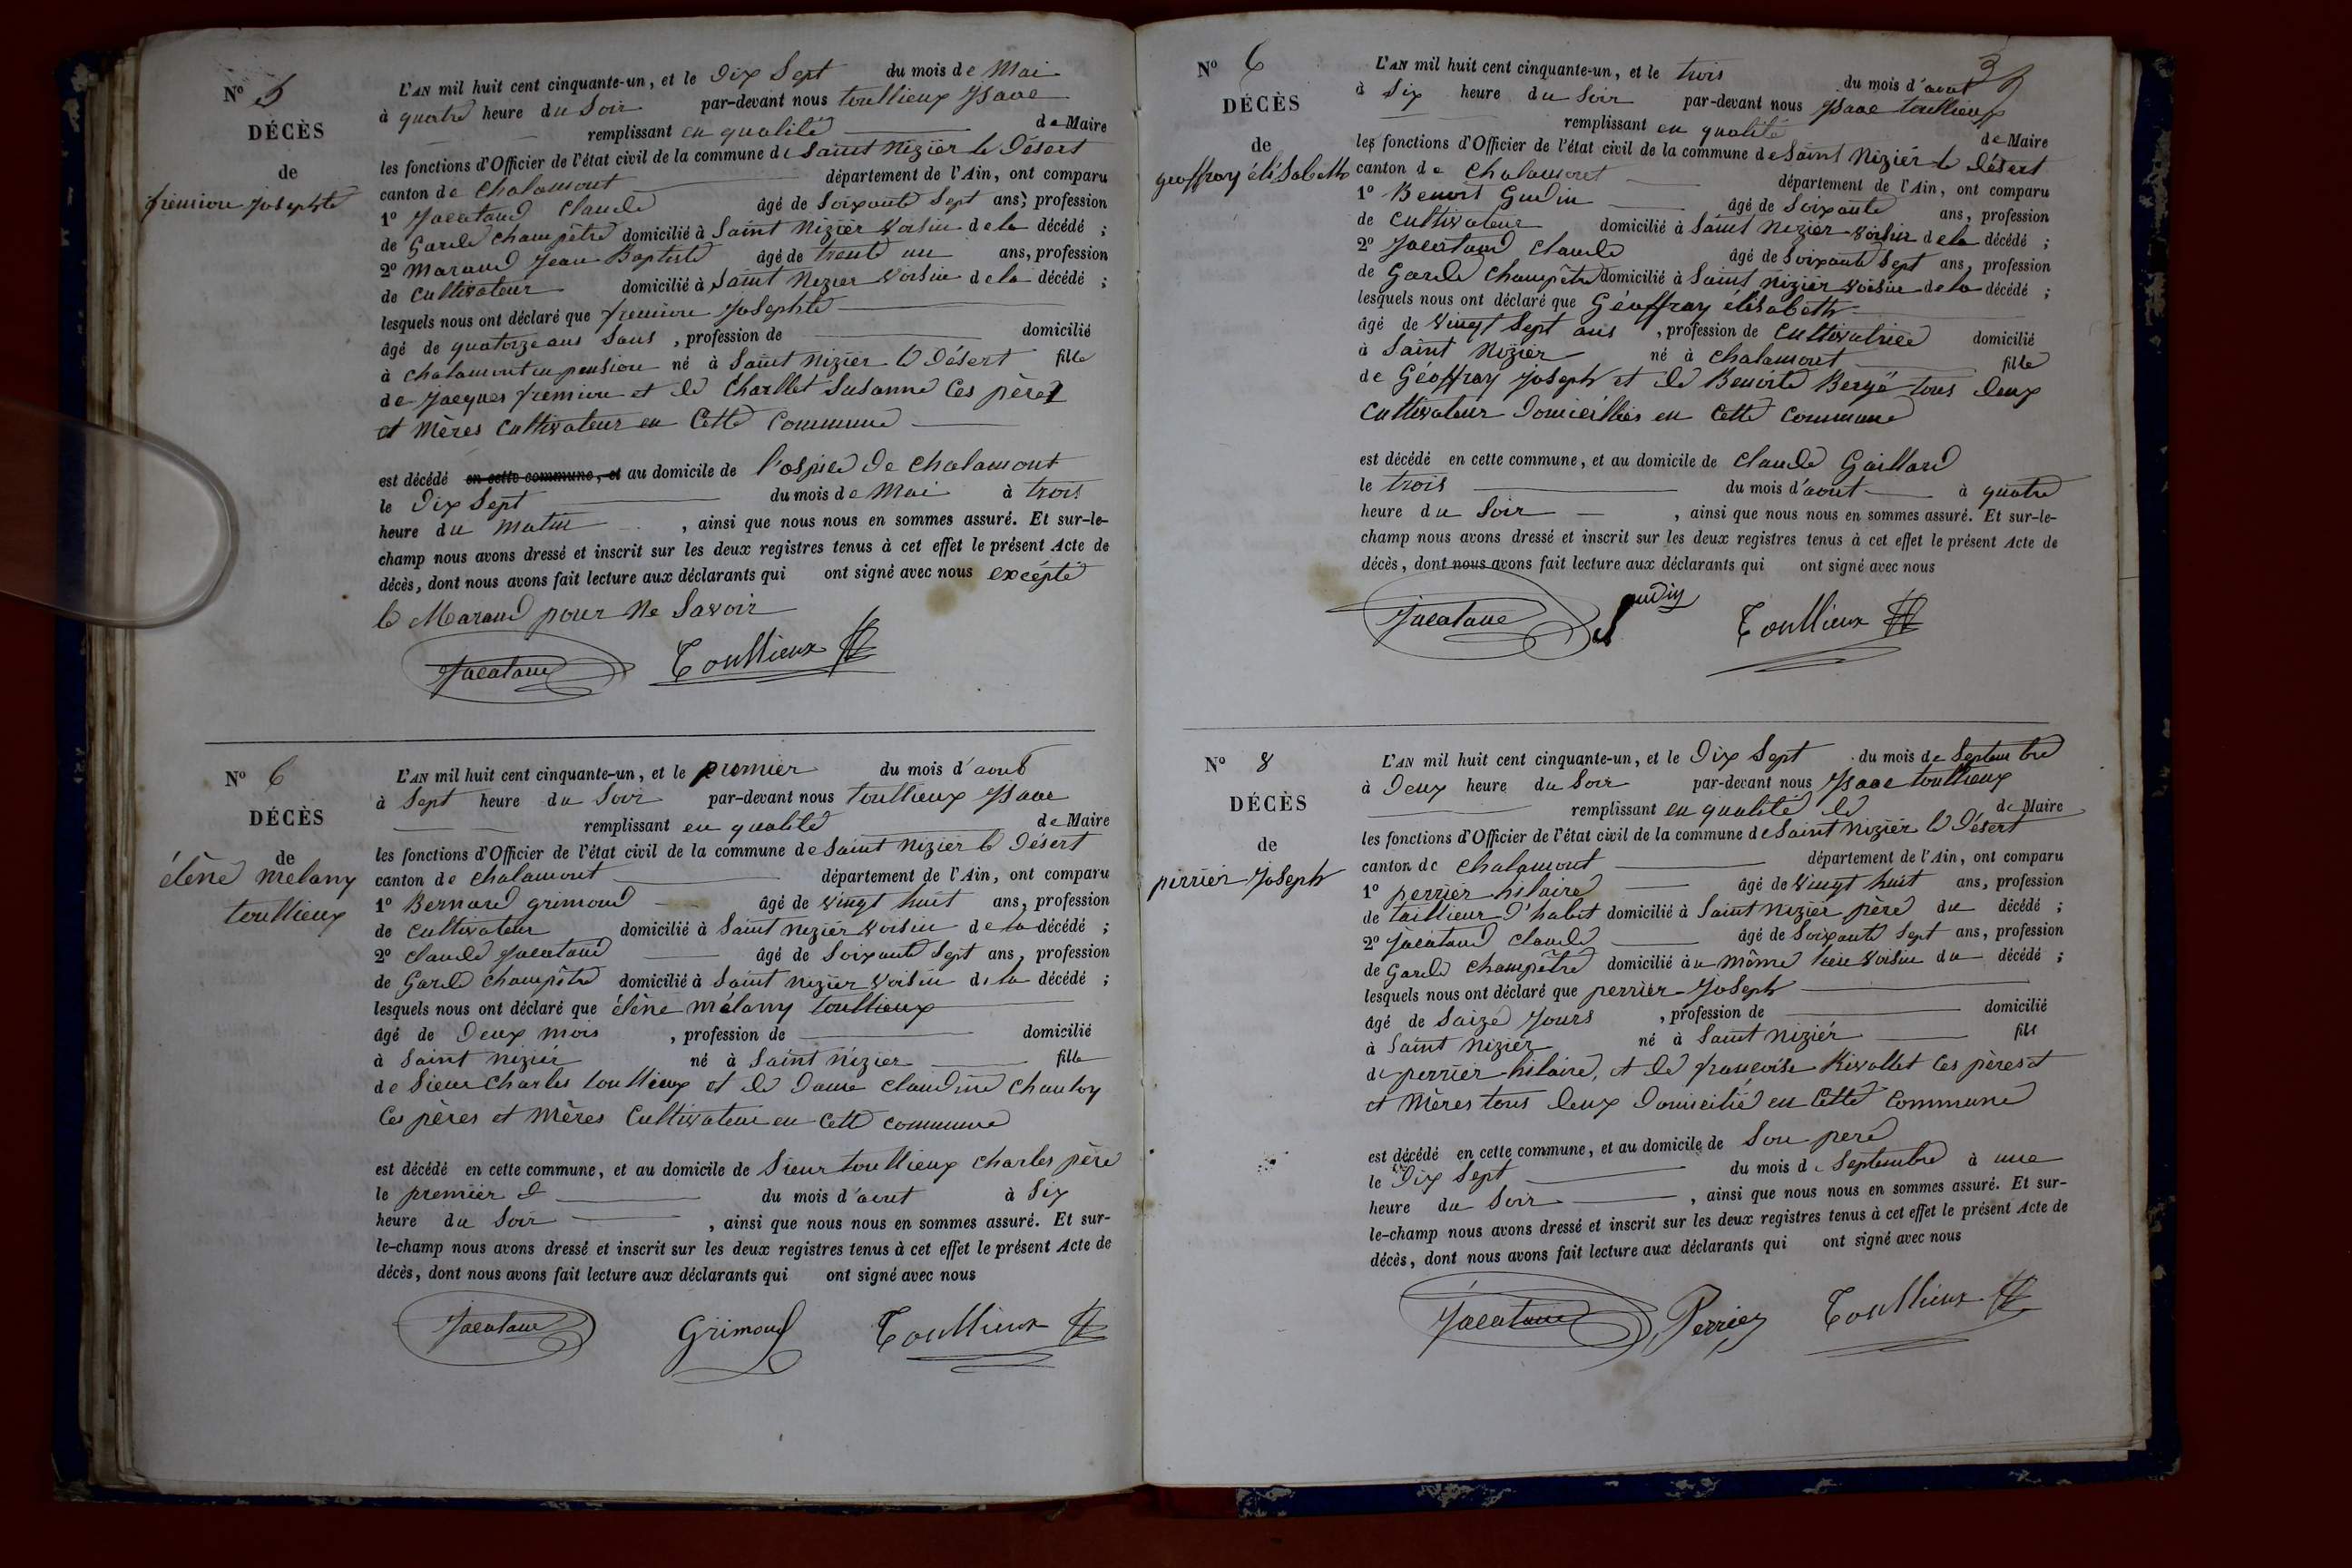 N° 5
DÉCÈS
de
fremion Josephte
L'AN mil huit cent cinquante-un, et le Dix Sept du mois de Mai
à quatre heure du Soir par-devant nous toullieux Isaac
remplissant en qualité de Maire
les fonctions d'Officier de l'état civil de la commune de Saint Nizier le Désert
canton de Chalamont département de l'Ain, ont comparu
1° Jacataud Claude âgé de Soixante Sept ans, profession
de Garde Champêtre domicilié à Saint Nizier Voisin de la décédé ;
2° Maraud Jean Baptiste âgé de trente un ans, profession
de Cultivateur domicilié à Saint Nizier Voisin de la décédé ;
lesquels nous ont déclaré que fremion Josephte
âgé de quatorze ans Sans , profession de domicilié
à Chalamont en pension né à Saint Nizier le Désert fille
de Jacques fremion et de Charllet Susanne Ces pères
et Mères Cultivateur en Cette Commune
est décédé en cette commune, et au domicile de l'ospice de Chalamont
le Dix Sept du mois de Mai à trois
heure du Matin , ainsi que nous nous en sommes assuré. Et sur-le-
champ nous avons dressé et inscrit sur les deux registres tenus à cet effet le présent Acte de
décès, dont nous avons fait lecture aux déclarants qui ont signé avec nous excépté
le Maraud pour Ne Savoir
Jacataud Toullieux
N° 6
DÉCÈS
de
élène Melany
toullieux
L'AN mil huit cent cinquante-un, et le premier du mois d'aout
à Sept heure du Soir par-devant nous toullieux Isaac
remplissant en qualité de Maire
les fonctions d'Officier de l'état civil de la commune de Saint Nizier le Désert
canton de Chalamont département de l'Ain, ont comparu
1° Bernard grimoud âgé de vingt huit ans, profession
de Cultivateur domicilié à Saint Nizier Voisin de la décédé ;
2° Claude Jacataud âgé de Soixante Sept ans, profession
de Garde Champêtre domicilié à Saint Nizier Voisin de la décédé ;
lesquels nous ont déclaré que élène mélany toullieux
âgé de Deux mois , profession de domicilié
à Saint Nizier né à Saint Nizier fille
de Sieur Charles toullieux et de Dame Claudine Chanloy
Ces pères et Mères Cultivateur en Cette commune
est décédé en cette commune, et au domicile de Sieur toullieux Charles père
le premier d du mois d'aout à Six
heure du Soir , ainsi que nous nous en sommes assuré. Et sur-
le-champ nous avons dressé et inscrit sur les deux registres tenus à cet effet le présent Acte de
décès, dont nous avons fait lecture aux déclarants qui ont signé avec nous
Jacataud Grimoud Toullieux
3
N° 6
DÉCÈS
de
geoffray élisabeth
L'AN mil huit cent cinquante-un, et le trois du mois d'aout
à Six heure du Soir par-devant nous Isaac toullieux
remplissant en qualité de Maire
les fonctions d'Officier de l'état civil de la commune de Saint Nizier le Désert
canton de Chalamont département de l'Ain, ont comparu
1° Benoit Gudin âgé de Soixante ans, profession
de Cultivateur domicilié à Saint Nizier Voisin de la décédé ;
2° Jacataud Claude âgé de Soixante Sept ans, profession
de Garde Champêtre domicilié à Saint Nizier Voisin de la décédé ;
lesquels nous ont déclaré que Géoffray élisabeth
âgé de Vingt Sept ans , profession de Cultivatrice domicilié
à Saint Nizier né à Chalamont fille
de Géoffray Joseph et de Benoite Bergé tous deux
Cultivateur Domicilliés en Cette Commune
est décédé en cette commune, et au domicile de Claude Gaillard
le trois du mois d'aout à quatre
heure du Soir , ainsi que nous nous en sommes assuré. Et sur-le-
champ nous avons dressé et inscrit sur les deux registres tenus à cet effet le présent Acte de
décès, dont nous avons fait lecture aux déclarants qui ont signé avec nous
Jacataud gudin Toullieux
N° 8
DÉCÈS
de
perrier Joseph
L'AN mil huit cent cinquante-un, et le Dix Sept du mois de Septembre
à Deux heure du Soir par-devant nous Isaac toullieux
remplissant en qualité de de Maire
les fonctions d'Officier de l'état civil de la commune de Saint Nizier le Désert
canton de Chalamont département de l'Ain, ont comparu
1° perrier hilaire âgé de Vingt huit ans, profession
de taillieur d'habit domicilié à Saint Nizier père du décédé ;
2° Jacataud Claude âgé de Soixante Sept ans, profession
de Garde Champêtre domicilié au même lieu Voisin du décédé ;
lesquels nous ont déclaré que perrier Joseph
âgé de Saize Jours , profession de domicilié
à Saint Nizier né à Saint Nizier fils
de perrier hilaire, et de françoise Rivollet Ces pères et
et Mères tous deux Domicilié en Cette Commune
est décédé en cette commune, et au domicile de Son pere
le Dix Sept du mois de Septembre à une
heure du Soir , ainsi que nous nous en sommes assuré. Et sur-
le-champ nous avons dressé et inscrit sur les deux registres tenus à cet effet le présent Acte de
décès, dont nous avons fait lecture aux déclarants qui ont signé avec nous
Jacataud Perrier Toullieux